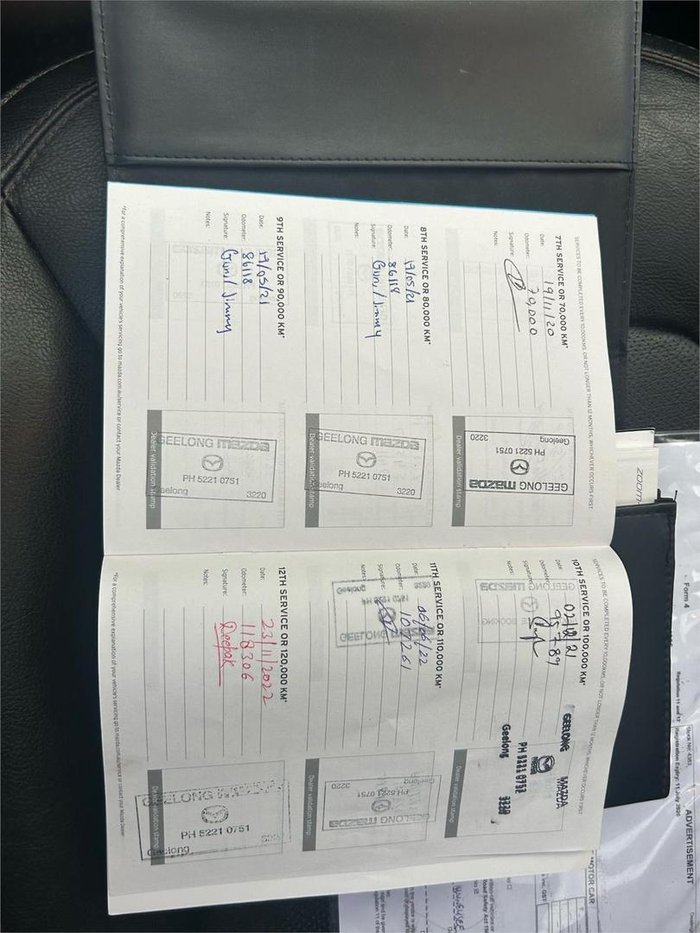 SERVICES TO BE COMPLETED EVERY 10,000KMS, OR NOT LONGER THAN 12 MONTHS, WHICHEVER OCCURS FIRST
7TH SERVICE OR 70,000 KM*
Date: 19/11/20
Odometer: 79,000
Signature:
Notes:
GEELONG mazda
PH 5221 0751
Geelong 3220
Dealer validation stamp
8TH SERVICE OR 80,000 KM*
Date: 19/05/21
Odometer: 86118
Signature: Guril Jimmy
Notes:
GEELONG mazda
PH 5221 0751
Geelong 3220
Dealer validation stamp
9TH SERVICE OR 90,000 KM*
Date: 19/05/21
Odometer: 86118
Signature: Guril Jimmy
Notes:
GEELONG mazda
PH 5221 0751
Geelong 3220
Dealer validation stamp
*For a comprehensive explanation of your vehicle's servicing go to mazda.com.au/service or contact your Mazda Dealer
SERVICES TO BE COMPLETED EVERY 10,000KMS, OR NOT LONGER THAN 12 MONTHS, WHICHEVER OCCURS FIRST
10TH SERVICE OR 100,000 KM*
95789
GEELONG MAZDA
Geelong 3220
11TH SERVICE OR 110,000 KM*
Date: 06/06/22
Odometer:
Signature:
Notes:
GEELONG mazda
PH 5221 0751
3220
Dealer validation stamp
12TH SERVICE OR 120,000 KM*
Date: 23/11/2022
Odometer: 118306
Signature: Deepak
Notes:
GEELONG
PH 5221 0751
Geelong 3220
Dealer validation stamp
*For a comprehensive explanation of your vehicle's servicing go to mazda.com.au/service or contact your Mazda Dealer
zoom
Form 4
Registration Expiry: 11 July
ADVERTISEMENT
MOTOR CAR